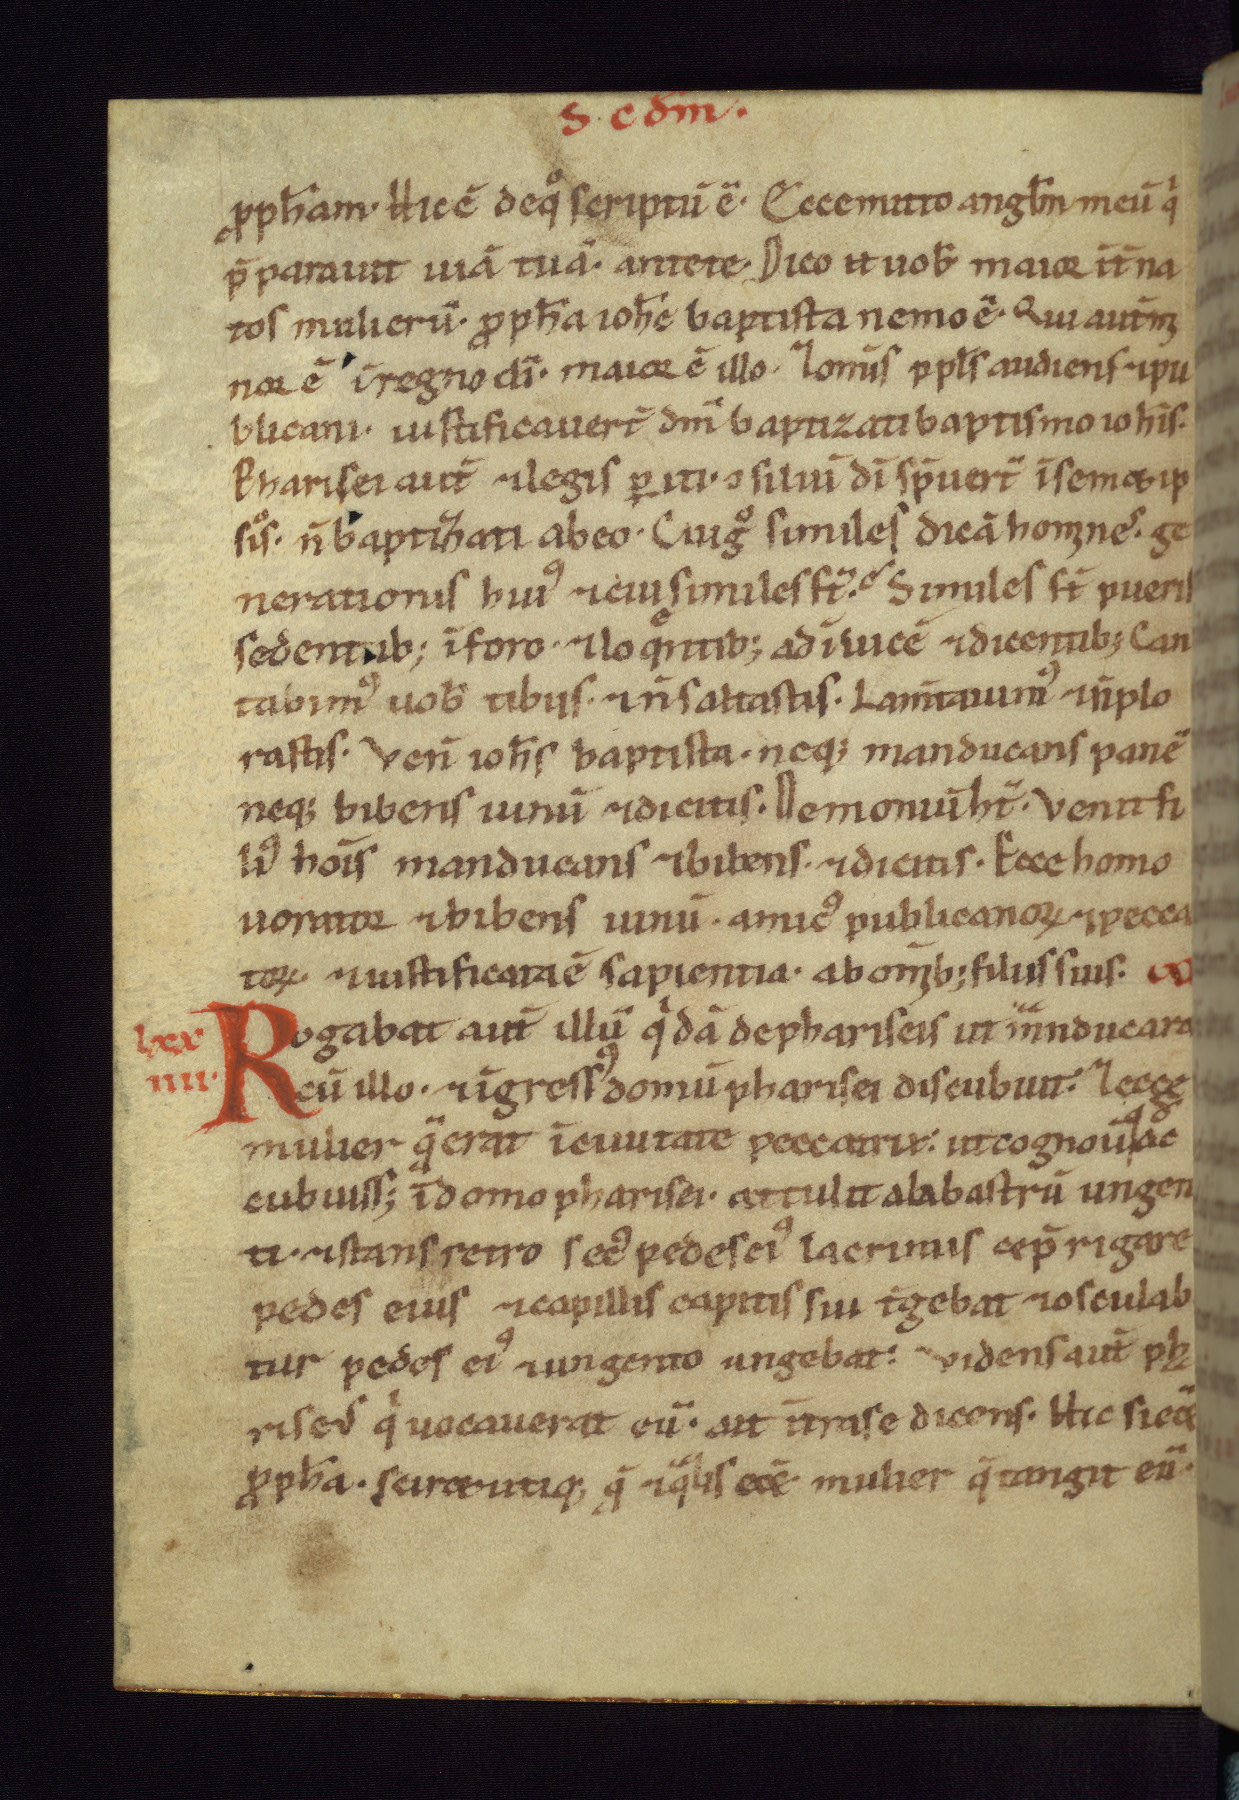 S. cdm.
ꝓph̄am. Hic ē de qͦ scriptū ē. Ecce mitto angl̄m meū qͥ
p̄parauit uiā tuā. ante te. Dico it̄ uob̄ maior int̄ na
tos mulierū. ꝓph̄a ioh̄e baptista nemo ē. Qui aut̄ mi
nor ē ī regno dī. maior ē illo. ⁊ om̄is ppl̄s audiens ⁊ pu
blicani. iustificauert̄ dm̄ baptizati baptismo ioh̄is.
Pharisei aut̄ ⁊ legis ꝑiti. ꝯsiliū dī sp̄uert̄ ī semet ip
sos. n̄ baptizati ab eo. Cui gͦ similes dicā homines. ge
nerationis huiꝰ ⁊ cui similes st̄. Similes st̄ pueris
sedentib; ī foro. ⁊ loqͤntib; ad īuicē ⁊ dicentib; Can
tabimꝰ uob̄ tibiis. ⁊ n̄ saltastis. Lam̄tauimꝰ ⁊ n̄ plo
rastis. Ven̄ ioh̄s baptista. neq; manducans panē
neq; bibens uinū ⁊ dicitis. Demoniū ht̄. Venit fi
liꝰ hoīs manducans ⁊ bibens. ⁊ dicitis. Ecce homo
uorator ⁊ bibens uinū. amicꝰ publicanoꝝ ⁊ pecca
toꝝ. ⁊ iustificata ē sapientia. ab om̄ib; filiis suis.
lxx
iiii.
Rogabat aut̄ illū qͥdā de phariseis ut manducara
cū illo. ⁊ īgressꝰ domū pharisei discubuit. ⁊ ecce
mulier q̄ erat ī ciuitate peccatrix. ut cognoū qd̄ ac
cubuiss; ī domo pharisei. attulit alabastrū ungen
ti. ⁊ stans retro secꝰ pedes eiꝰ lacrimis cep̄ rigare
pedes eius ⁊ capillis capitis sui t̄gebat ⁊ osculab
tur pedes eiꝰ ⁊ ungento ungebat. Videns aut̄ pha
riseꝰ qͥ uocauerat eū. ait īt̄ra se dicens. Hic si eēt
ꝓph̄a. sciret utiq; q̄ ⁊ qͣlis eēt mulier q̄ tangit eū.